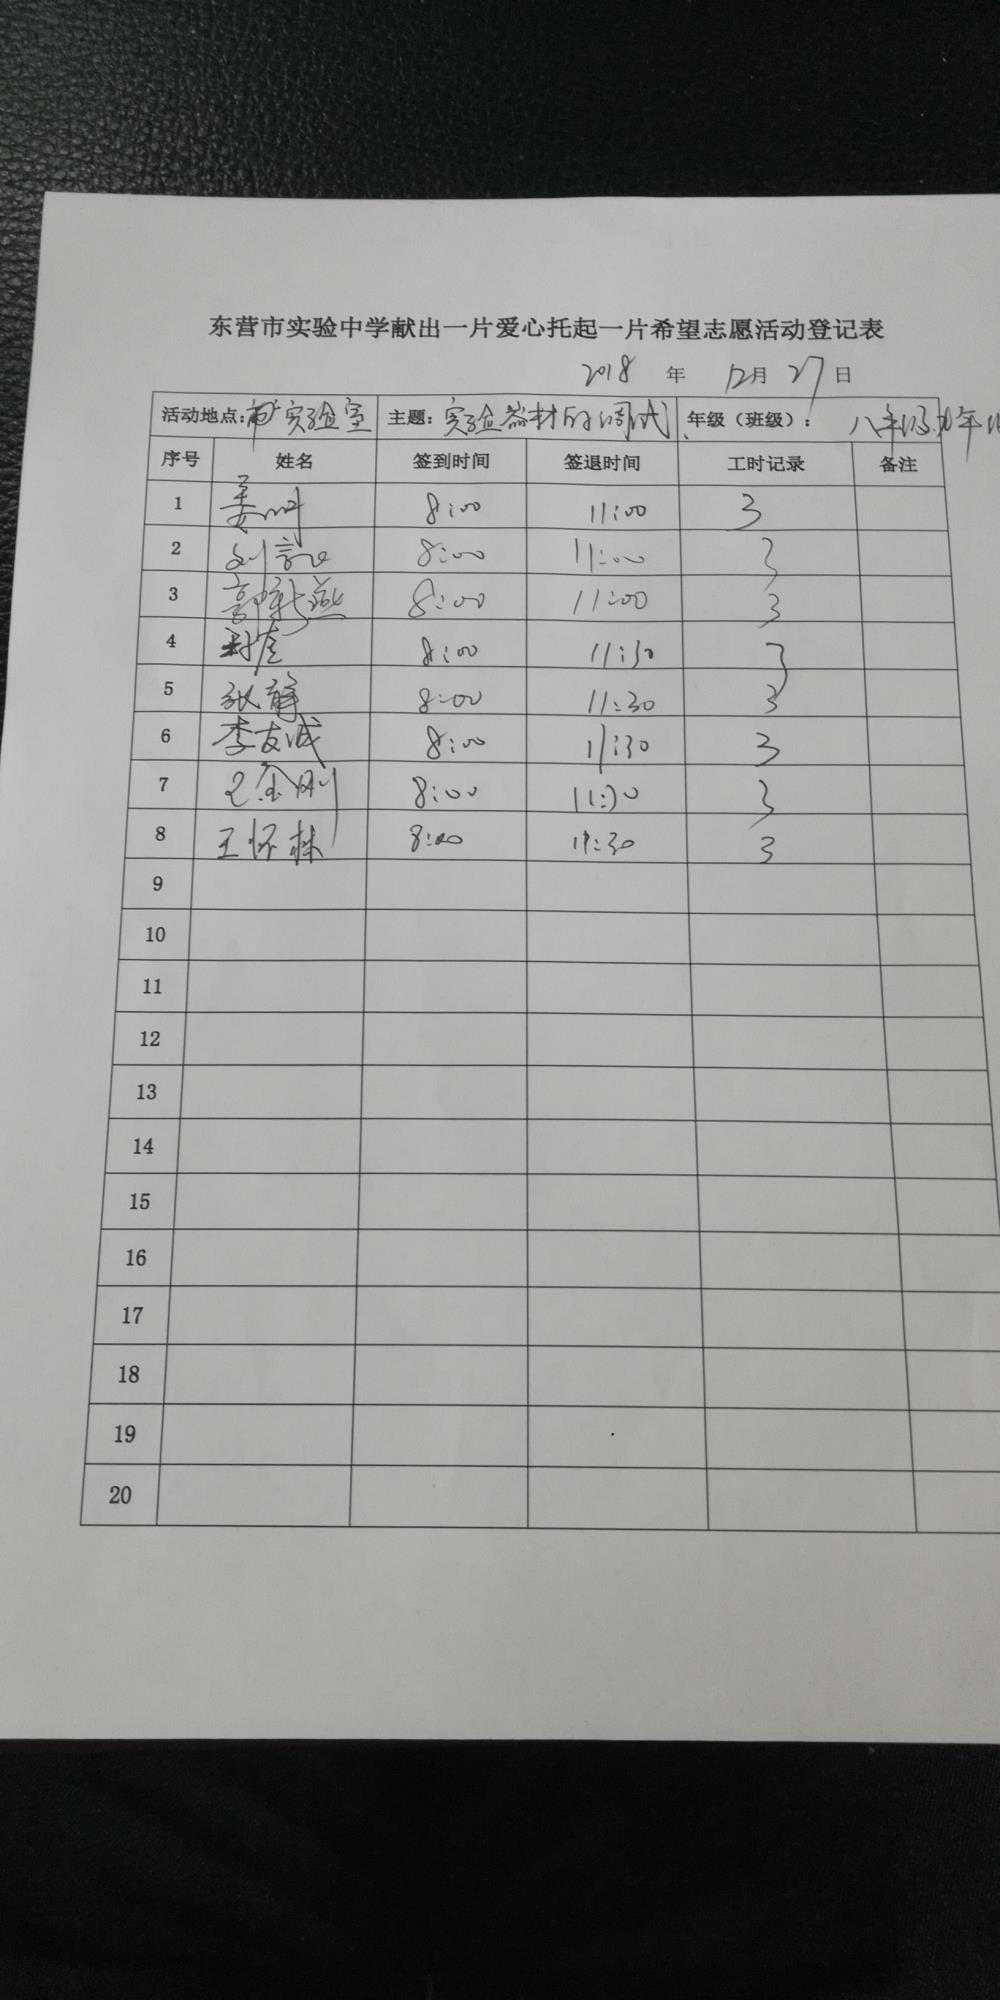 东营市实验中学献出一片爱心托起一片希望志愿活动登记表
2018 年 12月 27日
活动地点: 实验室 主题: 实验器材的调试 年级（班级）： 八年级
序号 姓名 签到时间 签退时间 工时记录 备注
1 姜 8:00 11:00 3
2 刘 8:00 11:00 3
3 郭新燕 8:00 11:00 3
4 8:00 11:30 3
5 张静 8:00 11:30 3
6 李友诚 8:00 11:30 3
7 金刚 8:00 11:30 3
8 王怀林 8:00 11:30 3
9
10
11
12
13
14
15
16
17
18
19
20